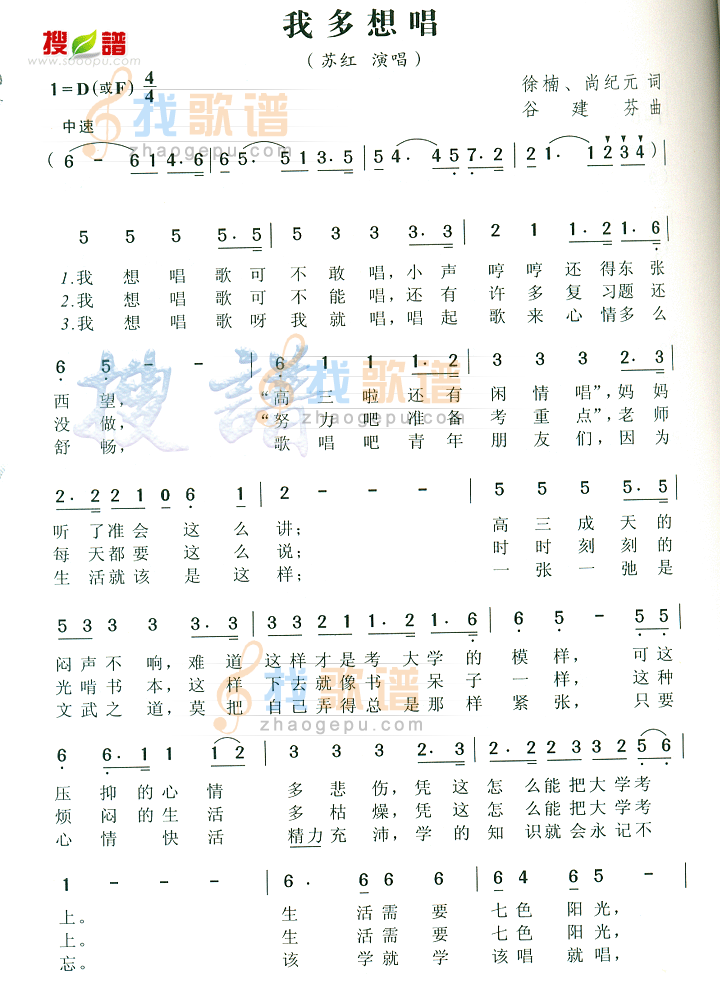 我多想唱
搜谱
www.sooopu.com
（苏红 演唱）
1=D(或F) 4/4
徐楠、尚纪元 词
谷建芬 曲
中速
找歌谱
zhaogepu.com
( 6 - 6 1 4. 6 | 6 5. 5 1 3. 5 | 5 4. 4 5 7. 2 | 2 1. 1 2 3 4 )
5 5 5 5. 5 | 5 3 3 3. 3 | 2 1 1 2 1. 6
1.我想唱歌可不敢唱，小声哼哼还得东张
2.我想唱歌可不能唱，还有许多复习题还
3.我想唱歌呀我就唱，唱起歌来心情多么
6 5. - - | 6 1 1 1. 2 | 3 3 3 2. 3
西望， “高三啦还有闲情唱”，妈妈
没做， “努力吧准备考重点”，老师
舒畅， 歌唱吧青年朋友们，因为
搜谱
找歌谱
zhaogepu.com
2. 2 2 1 0 6 1 | 2 - - | 5 5 5 5. 5
听了准会这么讲； 高三成天的
每天都要这么说； 时时刻刻的
生活就该是这样； 一张一弛是
5 3 3 3 3. 3 | 3 3 2 1 1. 2 1. 6 | 6 5 - 5 5
闷声不响，难道这样才是考大学的模样，可这
光啃书本，这样下去就像书呆子一样，这种
文武之道，莫把自己弄得总是那样紧张，只要
找歌谱
zhaogepu.com
6 6. 1 1 1 2 | 3 3 3 2. 3 | 2 2 2 3 2 5 6
压抑的心情多悲伤，凭这怎么能把大学考
烦闷的生活多枯燥，凭这怎么能把大学考
心情快活精力充沛，学的知识就会永记不
1 - - - | 6. 6 6 6 | 6 4 6 5 -
上。 生活需要七色阳光，
上。 生活需要七色阳光，
忘。 该学就学该唱就唱，